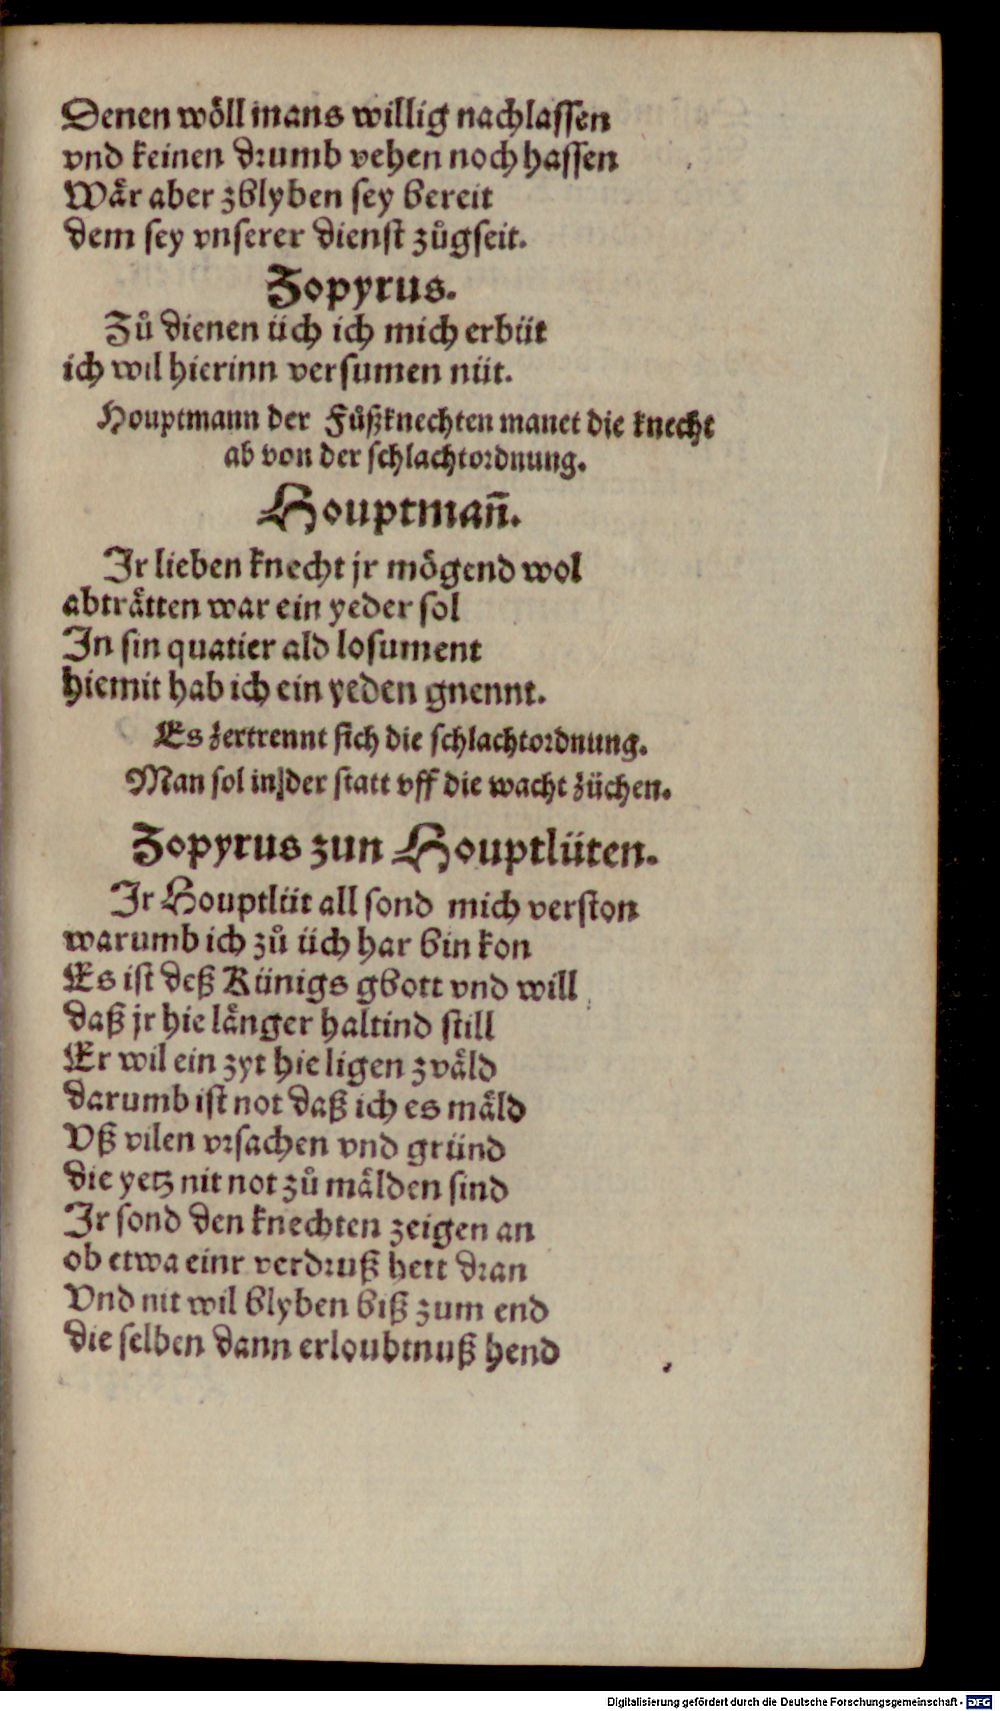 Denen wöll mans willig nachlassen
vnd keinen drumb vehen noch hassen
Wår aber zblyben sey bereit
dem sey vnserer dienst zůgseit.
Zopyrus.
Zů dienen üch ich mich erbüt
ich wil hierinn versumen nüt.
Houptmann der Fůßknechten manet die knecht
ab von der schlachtordnung.
Houptmañ.
Ir lieben knecht jr mögend wol
abträtten war ein yeder sol
In sin quatier ald losument
hiemit hab ich ein yeden gnennt.
Es zertrennt sich die schlachtordnung.
Man sol in der statt vff die wacht züchen.
Zopyrus zun Houptlüten.
Ir Houptlüt all sond mich verston
warumb ich zů üch har bin kon
Es ist deß Künigs gbott vnd will
daß jr hie länger haltind still
Er wil ein zyt hie ligen zväld
darumb ist not daß ich es mäld
Vß vilen vrsachen vnd gründ
die yetz nit not zů mälden sind
Ir sond den knechten zeigen an
ob etwa einr verdruß hett dran
Vnd nit wil blyben biß zum end
die selben dann erloubtnuß hend
Digitalisierung gefördert durch die Deutsche Forschungsgemeinschaft - DFG